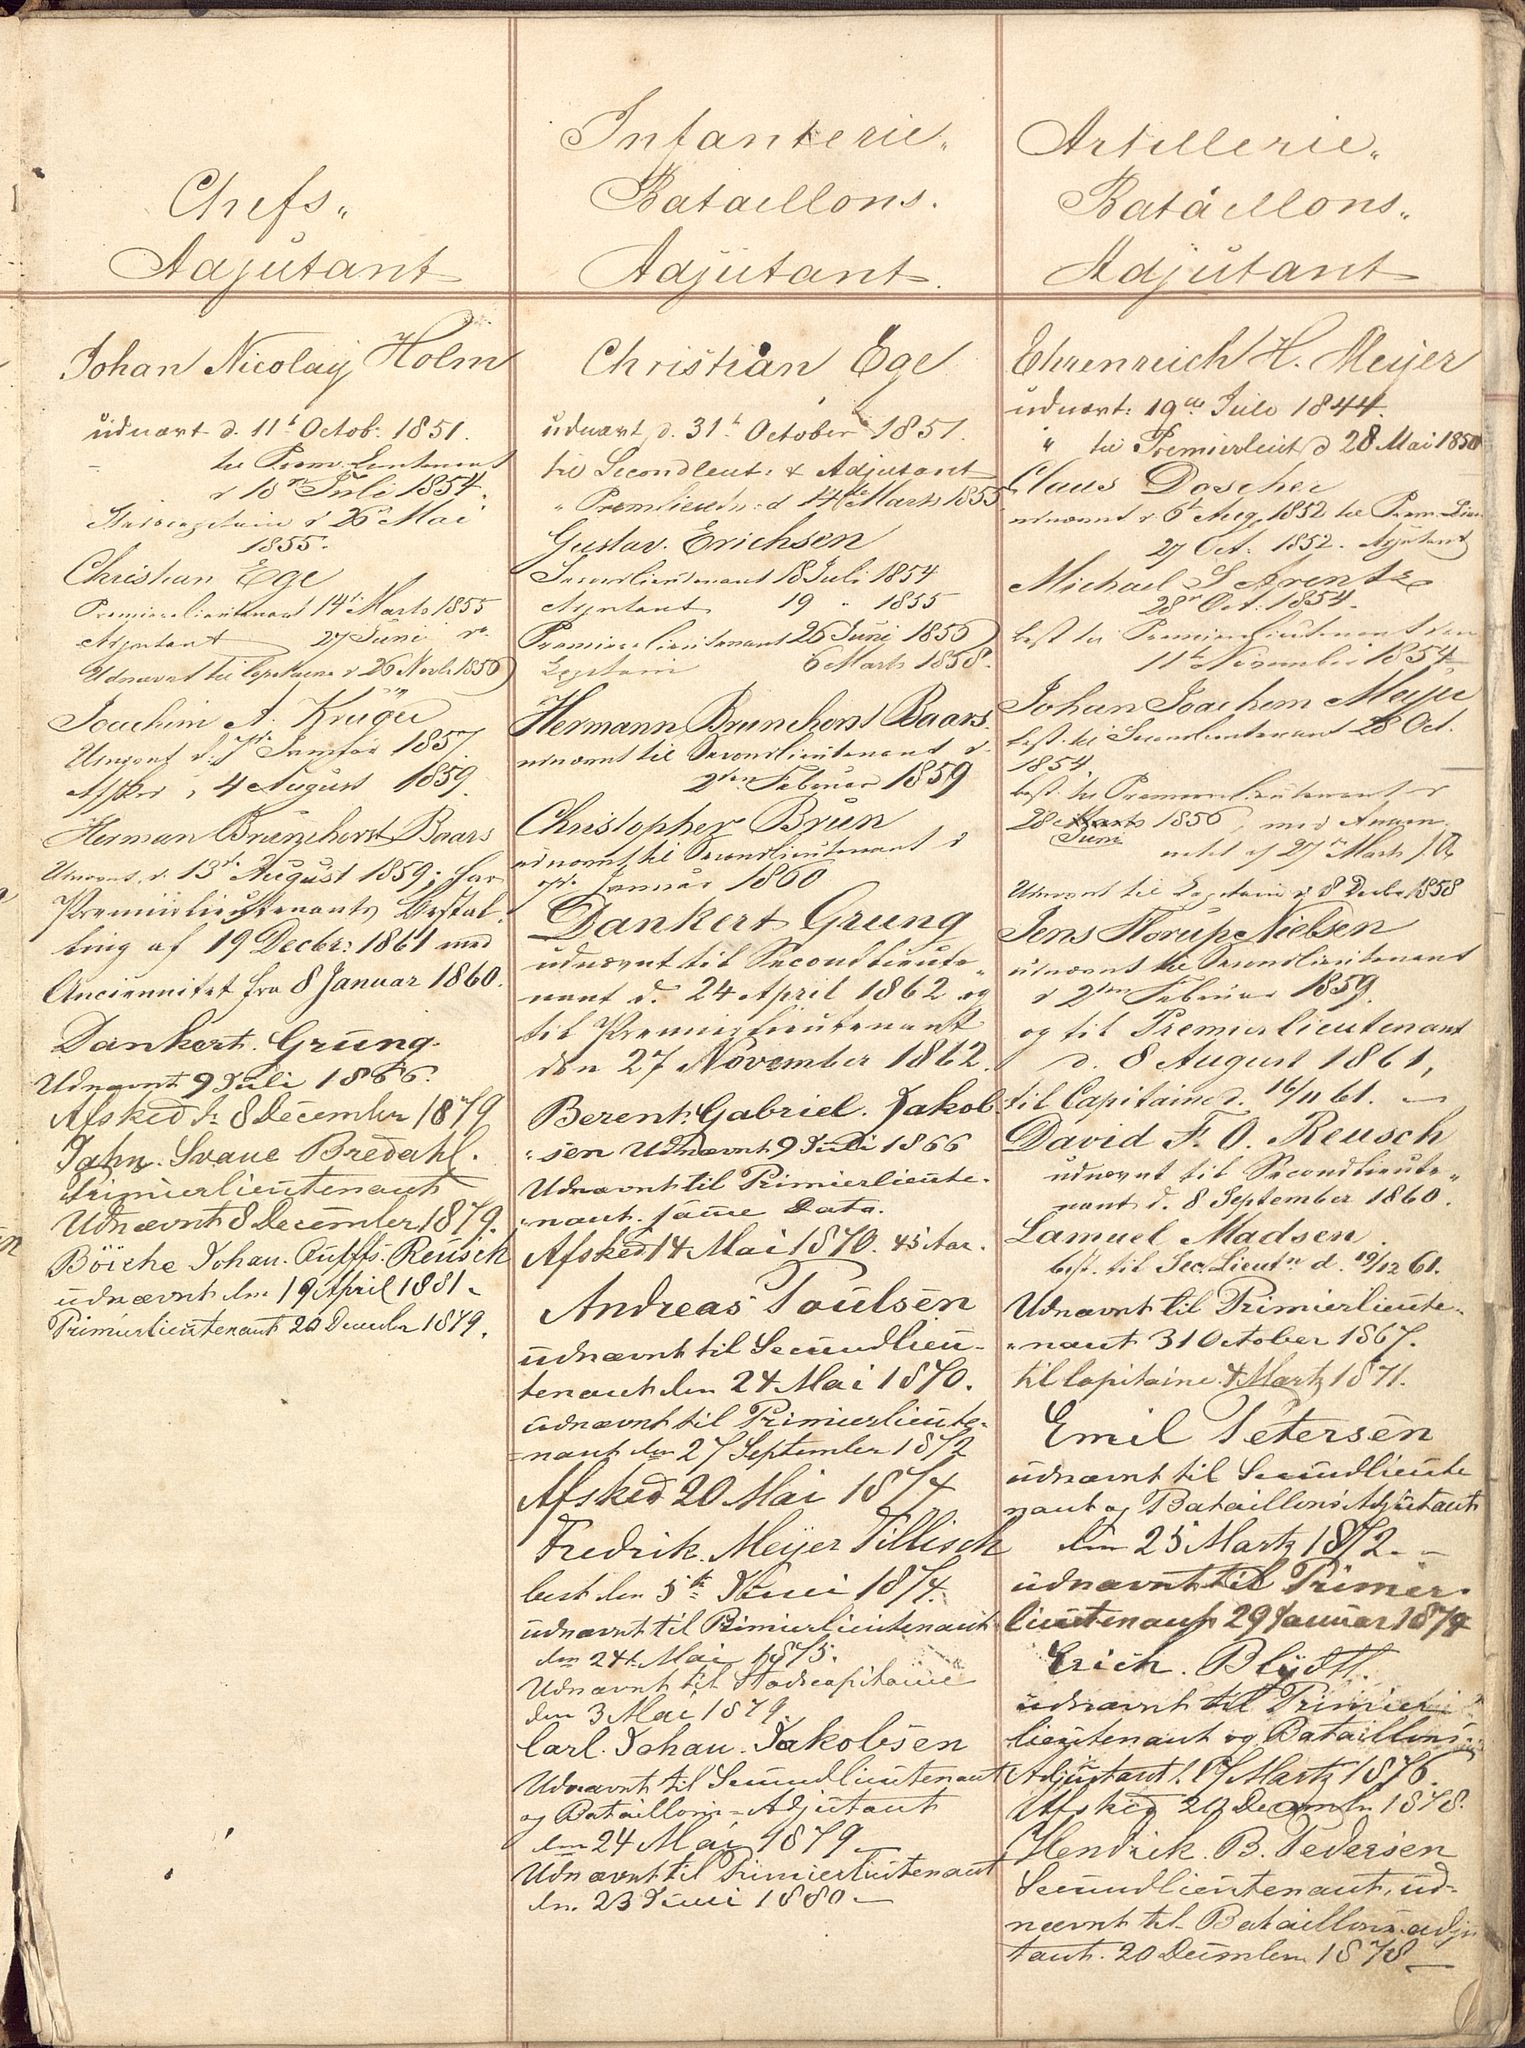 Chefs„
Adjutant
Johan Nicolay Holm
udnævt d. 11t Octob: 1851.
til Prem: Lieutenant
d 10n Juli 1854.
d 26 Mai
1855.
Christian Ege
Premierelieutenant 14de Marts 1855
Adjutant 27 Juni
Udnævnt til Capitaine d 26 Novb 1856
Joachim A. Krüger
Januar 1857.
Afsked 4 August 1859.
Herman Brunchorst Baars
Udnævnt d. 13de August 1859; har
Premierlieutenants Bestal-
ling af 19 Decbr: 1861 med
Anciennitet fra 8 Januar 1860.
Dankert Grung.
Udnævnt 9 Juli 1866.
Afsked 8 December 1879
Jahn. Svane Bredahl.
Primierlieutenant
Udnævnt 8 December 1879.
Johan Reusch
udnævnt den 19 April 1881.
Primierlieutenant 20 December 1879.
Infanterie„
Bataillons.
Adjutant.
Christian Ege
udnævt d. 31t October 1851.
til Secondleut: & Adjutant
„ Premlieutn: d 14de Marts 1855
Gustav. Erichsen
Secondlieutenant 18 Juli 1854
Adjutant 19 „ 1855
Premierelieutenant 26 Juni 1856
Capitain 6 Marts 1858.
Hermann Brunchorst Baars.
udnævnt til Secondlieutenant d
2den Februar 1859
Christopher Brun
udnævnt til Secondlieutenant d
Januar 1860
Dankert Grung
udnævnt til Secondlieute„
nant d. 24 April 1862 og
til Premierlieutenant
den 27 November 1862.
Berent. Gabriel. Jakob-
„sen Udnævnt 9 Juli 1866
Udnævnt til Primierlieute-
„nant. samme Dato.
Afsked 14 Mai 1870. 45 Aar.
Andreas Poulsen
udnævnt til Secundlieu-
tenant den 24 Mai 1870.
udnævnt til Primierlieute-
=nant den 27 September 1872
Afsked 20 Mai 1874
Fredrik. Meijer Tillisch
best den 5te Juni 1874.
udnævnt til Primierlieutenant
den 24t Mai 1875.
Udnævnt til Stadscapitaine
den 3 Mai 1879.
Carl. Johan. Jakobsen
Udnævnt til Secundlieutenant
og Bataillons=Adjutant
den 24 Mai 1879
Udnævnt til Primierlieutenant
den. 23 Juni 1880
Artillerie„
Bataillons„
Adjutant
Ehrenreich H. Meyer
udnævt: 19de Julo 1844.
„ til Premierleut d 28 Mai 1850
Claus Doscher
udnævnt d 6t Aug 1852 til Prem:Lieu
27 Oct. 1852. Adjutant
Michael S Arentz
28n Oct. 1854.
best til Premierlieutenant den
11te November 1854
Johan Joachim Meyer
best. til Secondlieutenant 28 Oct.
1854.
best. til Premierelieutenant d
28 Marts 1856, med Ancien-
Juni
nitet af 27de Marts
Udnævnt til Capitain d 8 Decbr 1858
Jens Horup Nielsen
udnævnt til Secondlieutenant
d 2den Februar 1859.
og til Premierlieutenant
d. 8 August 1861,
til Capitaine d. 16/11 61.
David F. O. Reusch
udnævnt til Secondlieute„
nant d. 8 September 1860.
Lamuel Madsen.
best. til Sec. Lieutn d. 19/12 61.
Udnævnt til Primierlieute-
„nant 31 October 1867.
til Capitaine 4 Martz 1871.
Emil Petersen
udnævnt til Secundlieute
nant og Bataillons Adjutant
den 25 Martz 1872.
udnævnt til Primier-
lieutenant 29 Januar 1874
Erich. Blydt.
udnævnt til Primier
lieutenant og Bataillons
Adjutant. 17 Martz 1876.
Afsked 20 Decembr 1878.
Hendrick. B. Pedersen
Secundlieutenant, ud-
nævnt til Bataillons-adju
tant. 20 December 1878